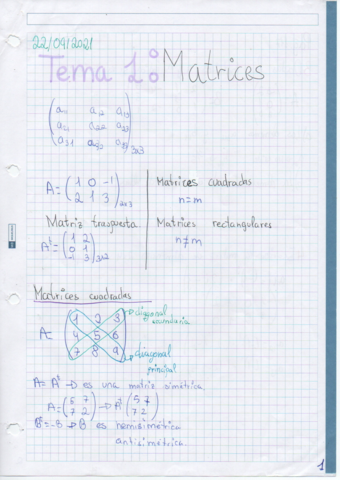 22/09/2021
Tema 1: Matrices
a11 a12 a13
a21 a22 a23
a31 a32 a33 3x3
A = (1 0 -1
2 1 3) 2x3
Matrices cuadradas
n=m
Matriz traspuesta
A^t = (1 2
0 1
-1 3) 3x2
Matrices rectangulares
n≠m
Matrices cuadradas
A= (1 2 3
4 5 6
7 8 9)
diagonal
secundaria
diagonal
principal
A = A^t → es una matriz simétrica
A = (5 7
7 2) → A^t (5 7
7 2)
B^t = -B → B es hemisimétrica
antisimétrica.
1